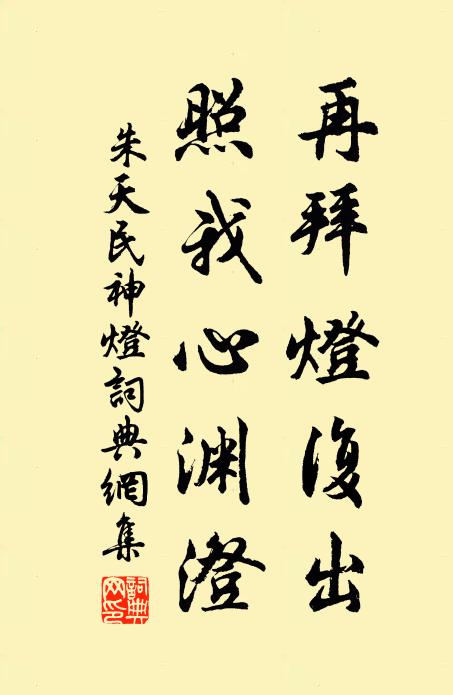 再拜燈復出
照我心渊澄
朱天民神燈詞典網集
詞典网印